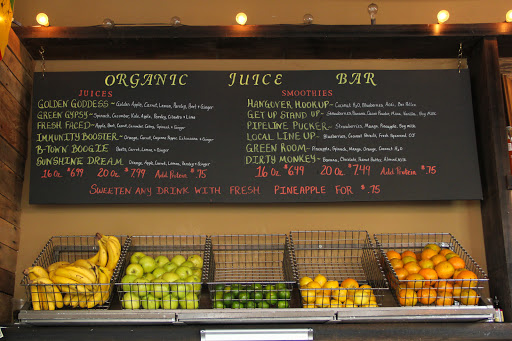 ORGANIC JUICE BAR
JUICES
GOLDEN GODDESS - Golden Apple, Carrot, Lemon, Parsley, Beet + Ginger
GREEN GYPSY - Spinach, Cucumber, Kale, Apple, Cilantro + Lime
FRESH FACED - Apple, Beet, Carrot, Cucumber, Celery, Spinach + Ginger
IMMUNITY BOOSTER - Orange, Carrot, Cayenne Pepper, + Ginger
B-TOWN BOOGIE Beets, Carrot, Lemon + Ginger
SUNSHINE DREAM Orange, Apple, Carrot, Lemon, Parsley + Ginger
16 Oz $6.99 20 Oz $7.99 Add Protein $.75
SMOOTHIES
HANGOVER HOOKUP - Coconut H2O, Blueberries,
GET UP STAND UP - Strawberries, Banana, Milk
PIPELINE PUCKER - Strawberries, Mango, Pineapple, Soy milk
LOCAL LINE UP - Blueberries, Coconut
GREEN ROOM - Pineapple, Spinach, Mango, Orange, Coconut H2O
DIRTY MONKEY - Banana, Chocolate, Peanut Butter, Almond milk
16 Oz $6.49 20 Oz $7.49 Add Protein $.75
SWEETEN ANY DRINK WITH FRESH PINEAPPLE FOR $.75